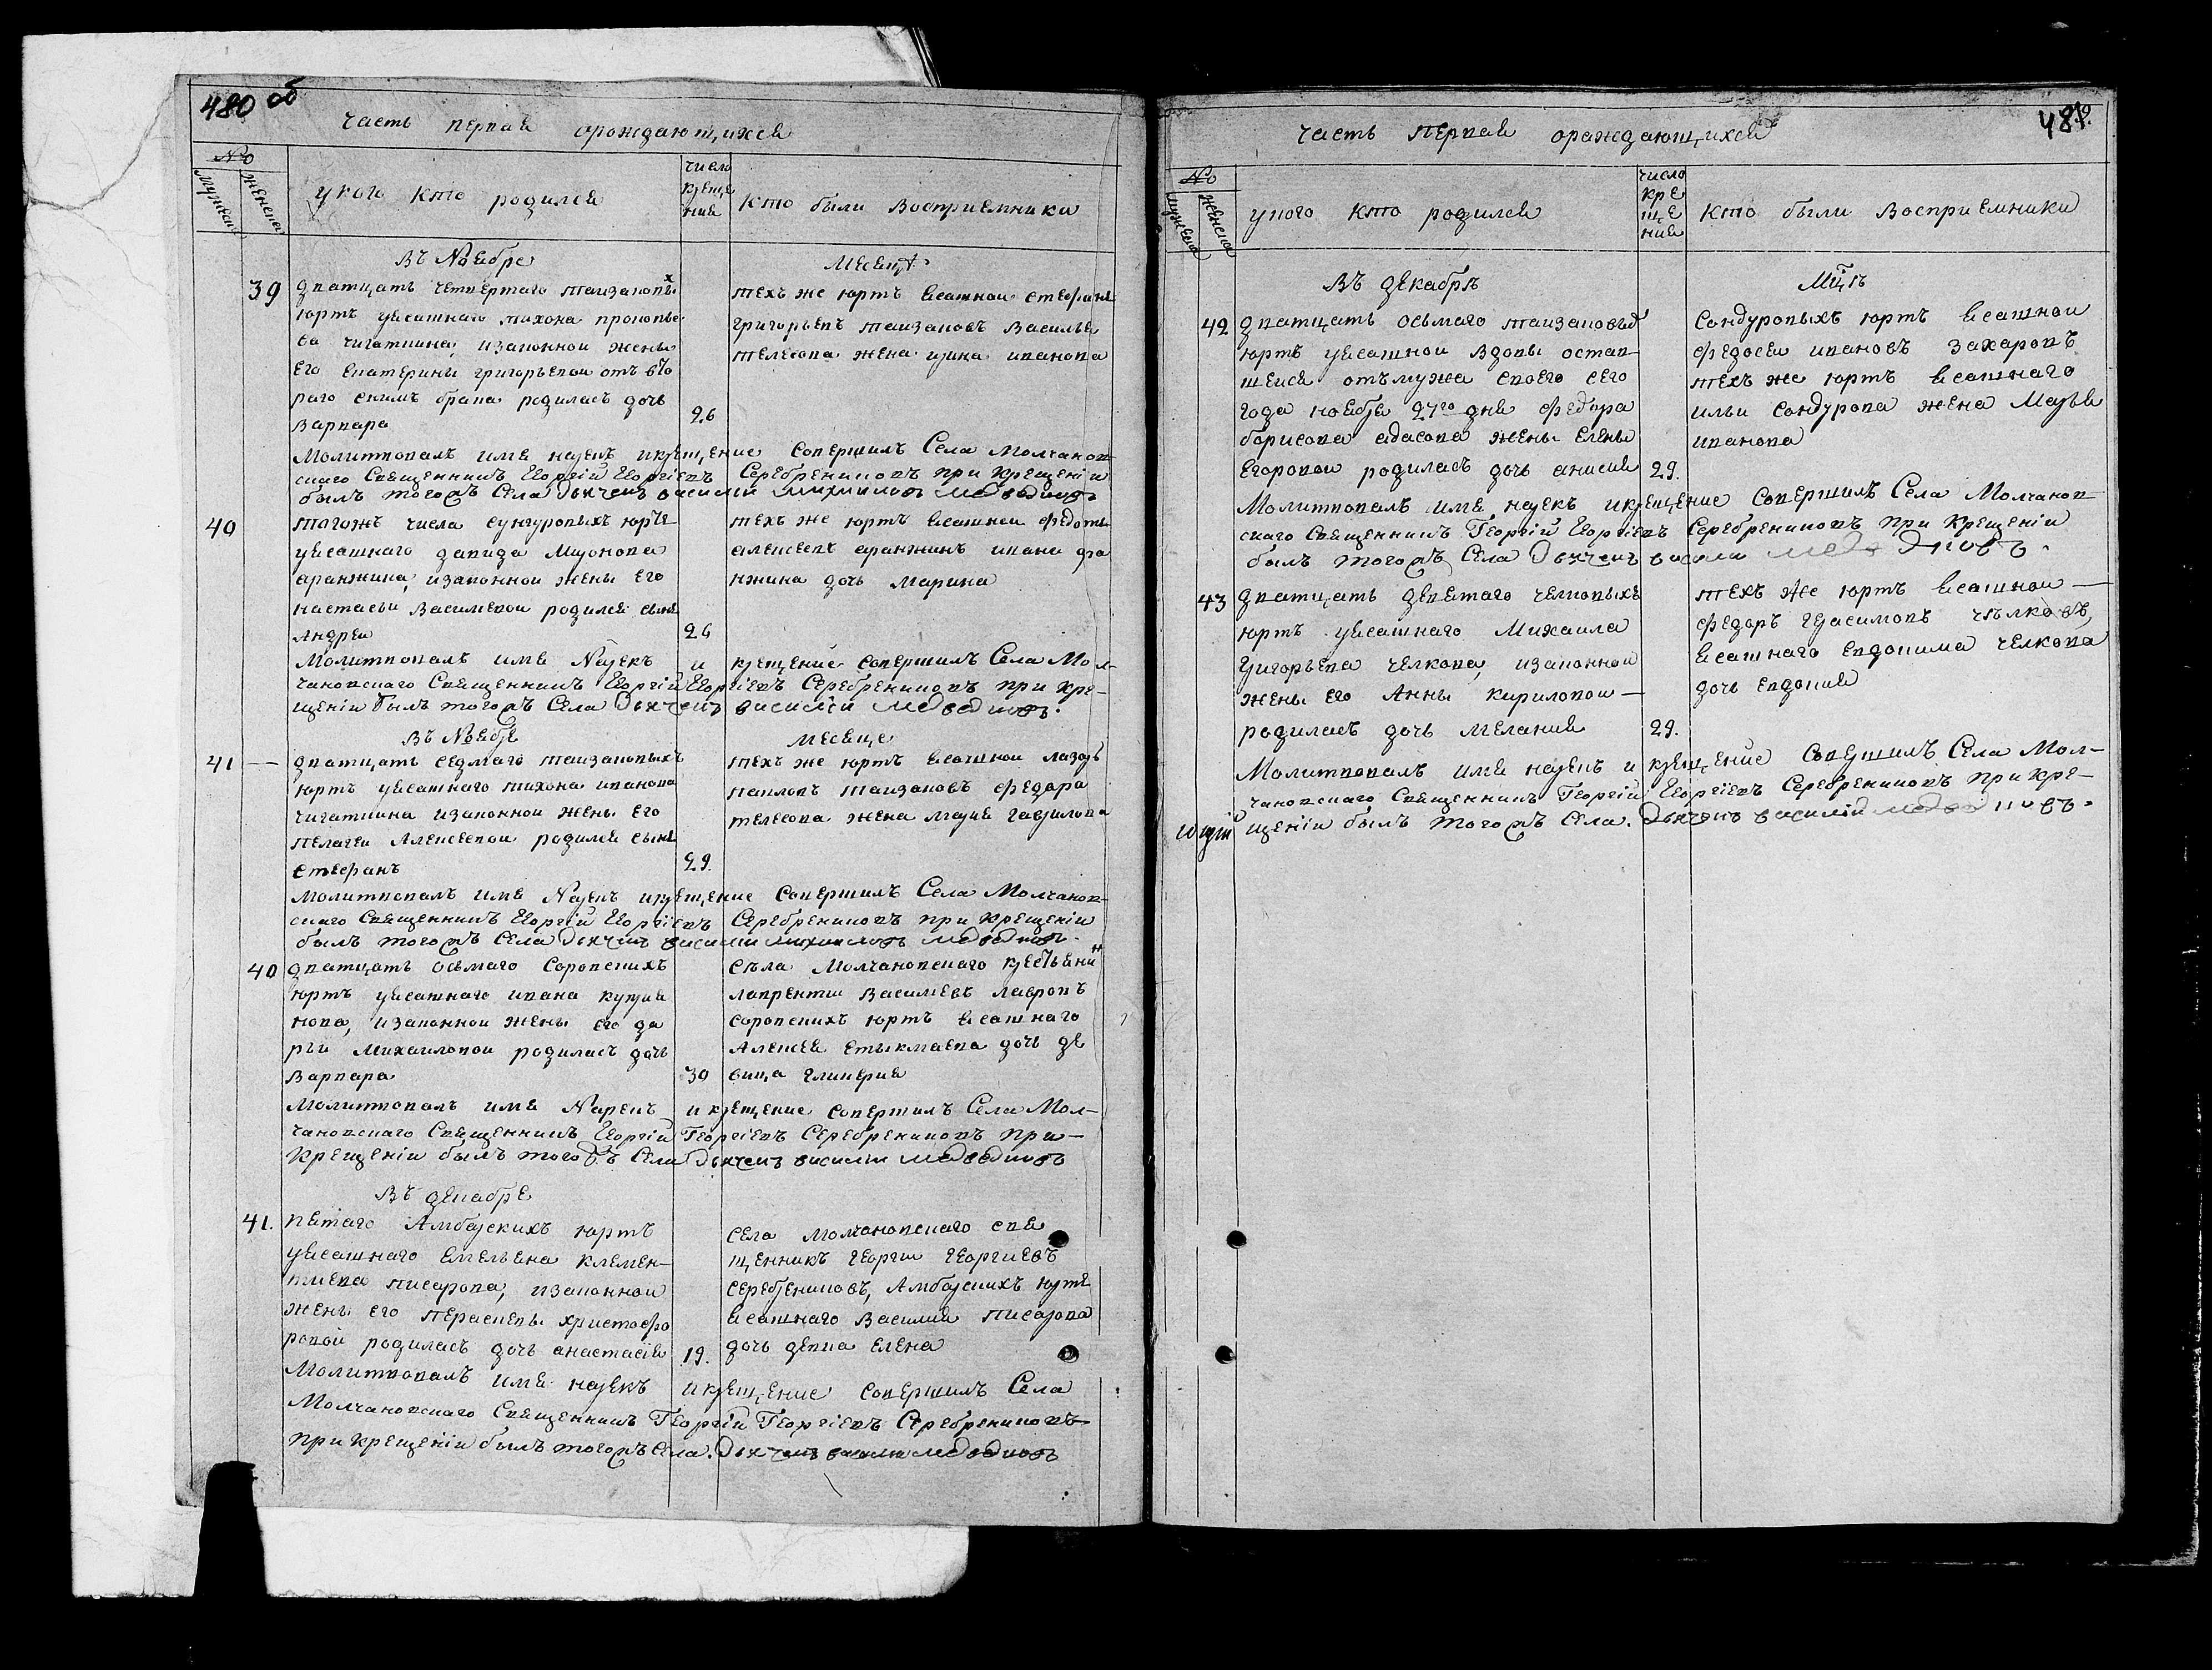 480 об
часть первая ораждающихся
№
мужеска
женска
у кого кто родился
число
креще
ния
кто были восприемники
Въ Ноябре
месяце
39
дватцать четвертаго таизаковых
юртъ уясашнаго тихона прокопье
ва чигаткина, изаконнои жены
его екатерины григорьевои отъ вто
раго снимъ брака родилась дочь
варвара
26
техъ же юртъ ясашнои стефанъ
григорьевъ таизаковъ василья
телесова жена ирина иванова
Молитвовалъ имя нарекъ икрещение совершилъ Села Молчанов-
скаго Священникъ Георгій Георгіевъ Серебрениковъ при крещеніи
былъ тогожъ Села дьячекъ василій михаиловъ медведковъ
40
тогожъ числа сунгуровыхъ юртъ
уясашнаго давида миронова
аранжина, изаконнои жены его
настасьи васильевои родился сынъ
Андреи
26
техъ же юртъ ясашнои федотъ
алексеевъ аранжинъ ивана ара
нжина дочь марина
Молитвовалъ имя Нарекъ и крещение совершилъ Села Мол-
чановскаго Священникъ Георгій Георгіевъ Серебрениковъ при кре-
щеніи былъ тогожъ Села дьячекъ василій медведковъ.
Въ Ноябре
месяце
41
дватцать седмаго таизаковыхъ
юртъ уясашнаго тихона иванова
чигаткина изаконнои жены его
пелагеи Алексеевои родился сынъ
стефанъ
29.
техъ же юртъ ясашнои лазарь
павловъ таизаковъ федора
телесова жена мария гаврилова
Молитвовалъ имя Нарекъ икрещение совершилъ Села Молчанов-
скаго Священникъ Георгій Георгіевъ Серебрениковъ при крещеніи
былъ тогожъ Села дьячекъ василій михаиловъ медведковъ.
40
дватцать осьмаго соровскихъ
юртъ уясашнаго ивана куприя
нова, изаконнои жены его да
рьи михаиловои родилась дочь
варвара
30
села Молчановскаго крестьянинъ
лаврентии васильевъ лавровъ
соровскихъ юртъ ясашнаго
Алексея етыкмаева дочь де
вица гликерия
Молитвовалъ имя Нарекъ и крещение совершилъ Села Мол-
чановскаго Священникъ Георгій Георгіевъ Серебрениковъ при
крещеніи былъ тогожъ Села дьячекъ василіи медведковъ
Въ декабре
41.
пятаго Амбарскихъ юртъ
уясашнаго емельяна клемен-
тиева писарова, изаконнои
жены его парасковьи христофо
ровои родилась дочь анастасія
19.
села молчановскаго свя
щенникъ георгии георгиевъ
серебрениковъ, Амбарскихъ юртъ
ясашнаго василия писарова
дочь девка елена
Молитвовалъ имя нарекъ икрещение совершилъ Села
Молчановскаго Священникъ Георгій Георгіевъ Серебрениковъ
при крещеніи былъ тогожъ Села. дьячекъ василіи медведковъ
481
часть первая ораждающихся
№
мужеска
женска
укого кто родился
число
кре
ще
ния
кто были восприемники
Въ декабрѣ
Мцѣ
42
дватцать осьмаго таизаковых
юртъ уясашнои вдовы остав-
шеися отъ мужа своего сего
года ноября 27го дня федора
борисова адасова жены елены
егоровои родилась дочь анисия
29.
сондуровыхъ юртъ ясашнои
федосеи ивановъ захаровъ
техъ же юртъ ясашнаго
ильи сондурова жена марья
иванова
Молитвовалъ имя нарекъ икрещение совершилъ Села Молчанов-
скаго Священникъ Георгій Георгіевъ Серебрениковъ при крещеніи
былъ тогожъ Села дьячекъ василіи медведковъ.
43
дватцать девятаго челковыхъ
юртъ уясашнаго Михаила
григорьева челкова, изаконнои
жены его Анны кириловои —
родилась дочь мелания
29.
техъ же юртъ ясашнои —
федоръ герасимовъ чѣлковъ,
ясашнаго евдокима челкова
дочь евдокия
Молитвовалъ имя нарекъ и крещение совершилъ Села Мол-
чановскаго Священникъ Георгій Георгіевъ Серебрениковъ при кре-
щеніи былъ тогожъ Села. дьячекъ василій медведковъ.